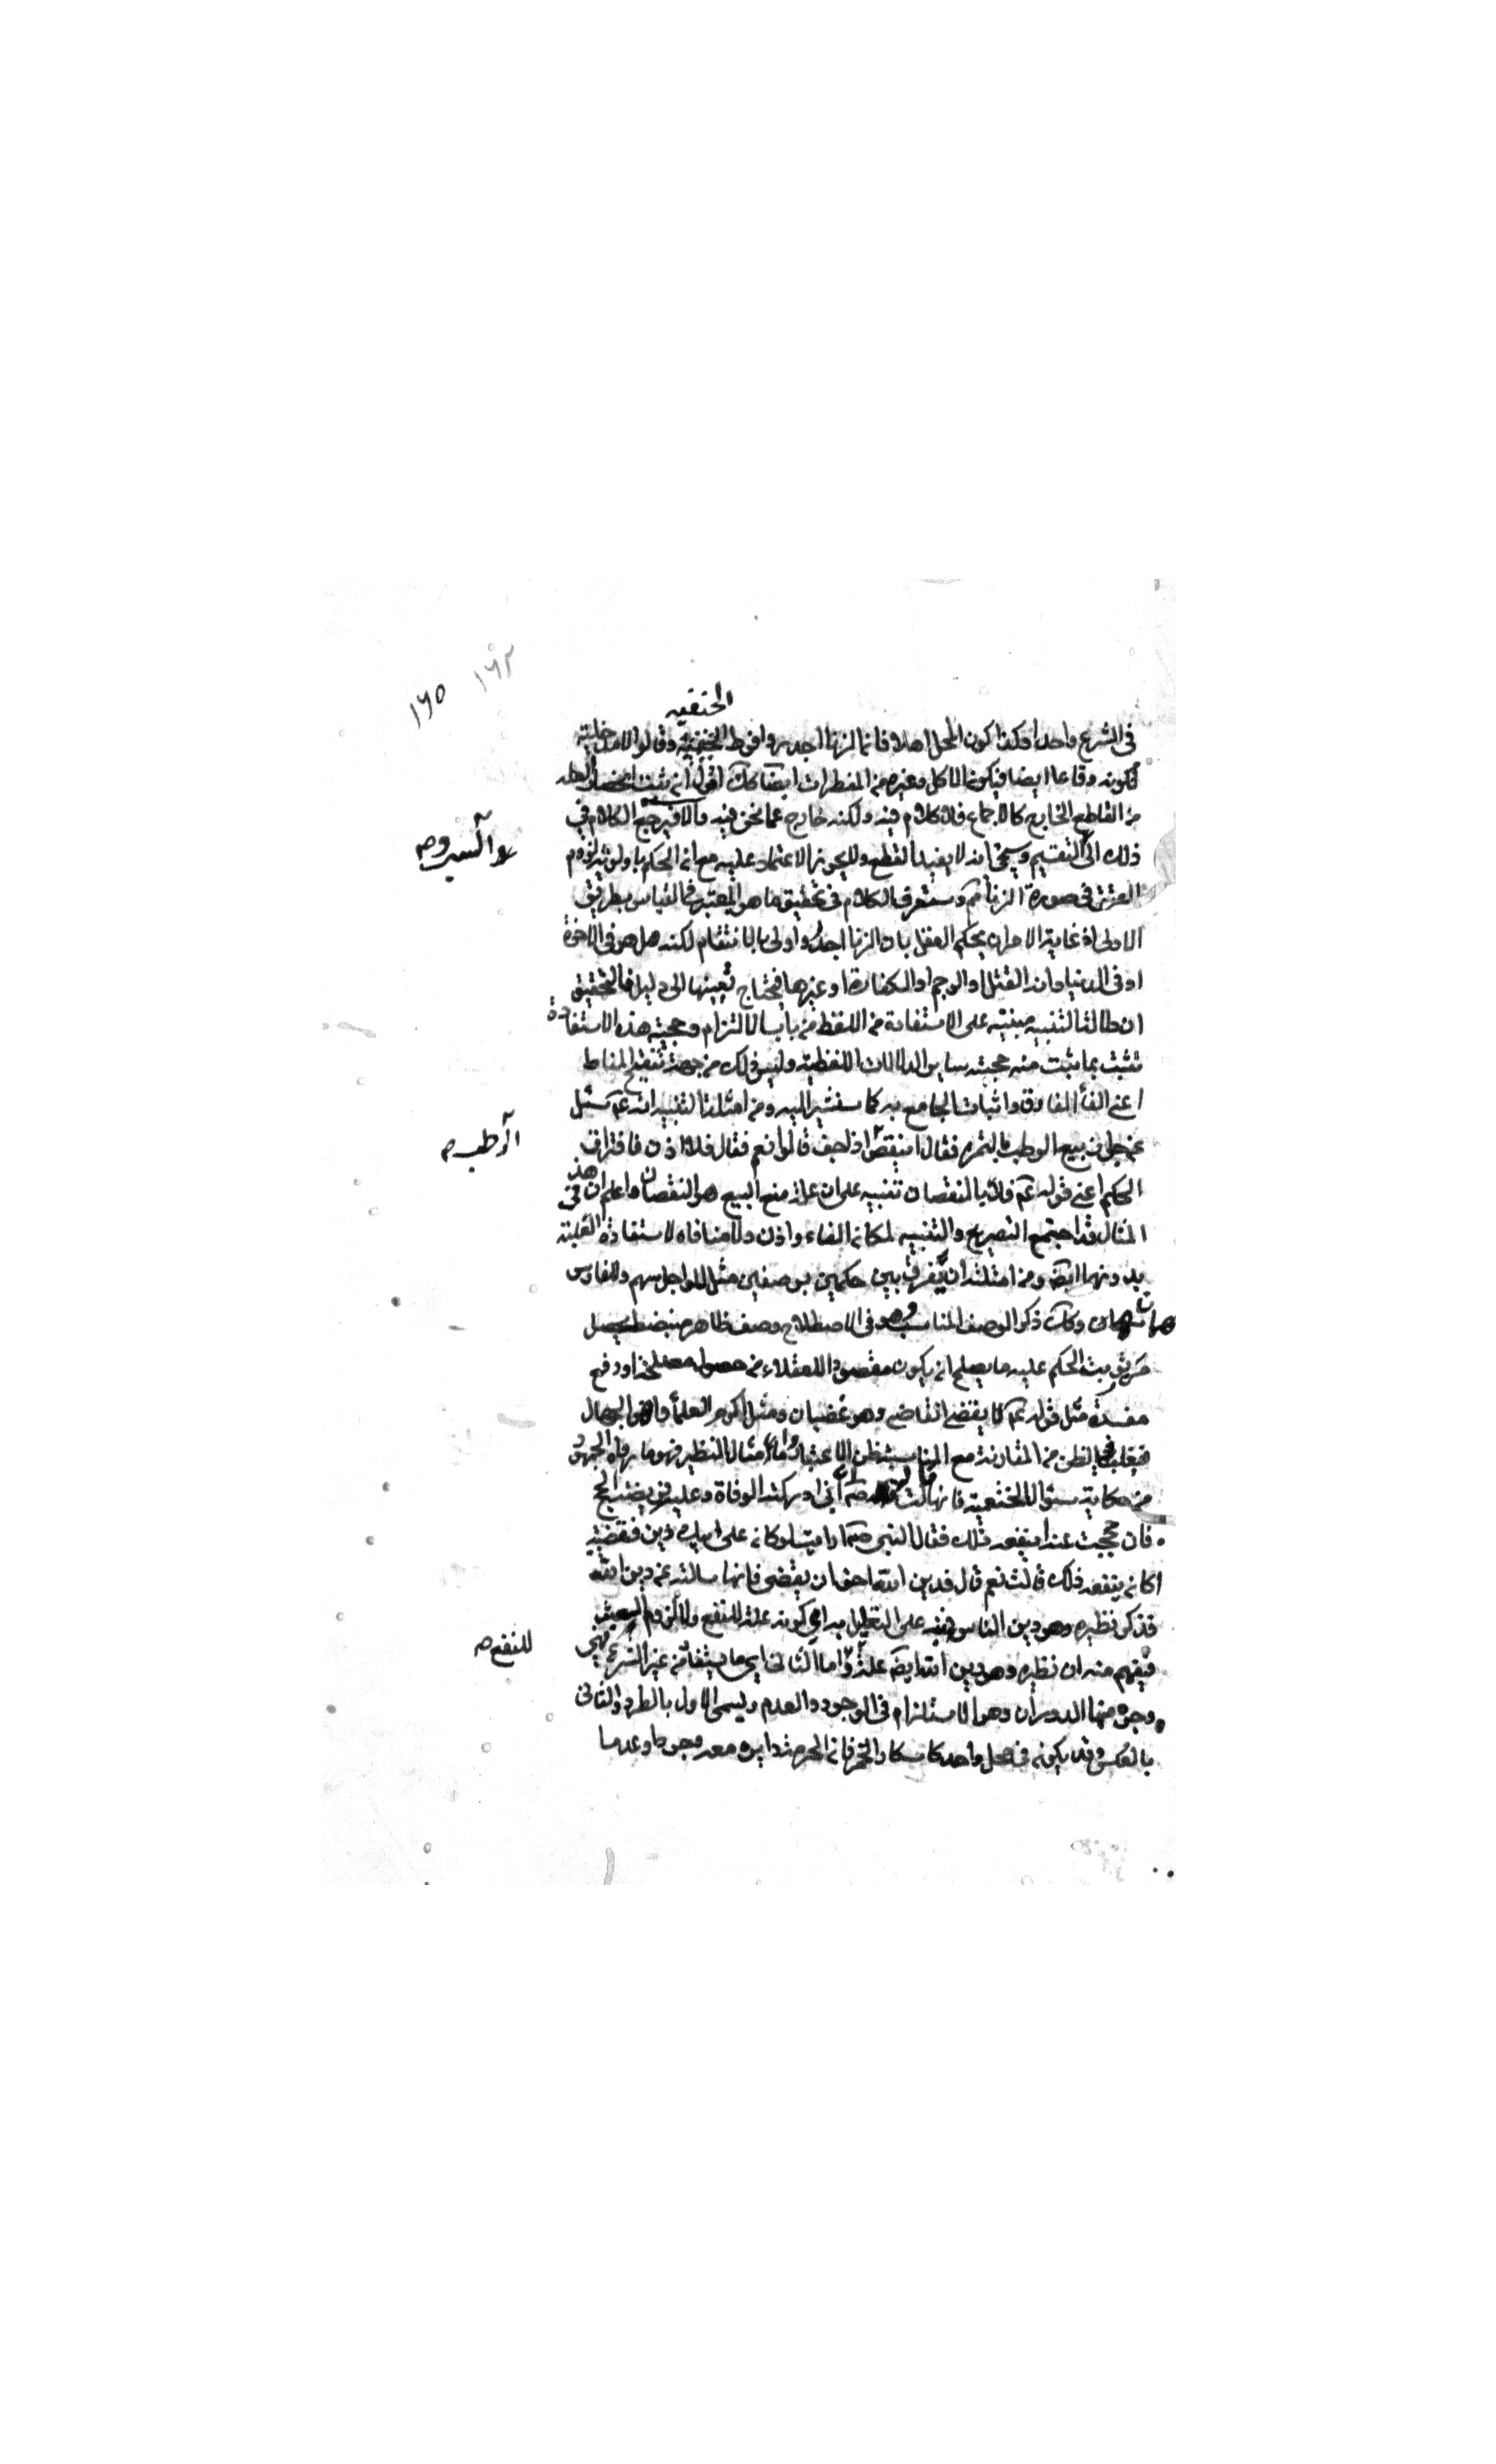 ١٦٢
١٦٥
الحنفيه
في الشرع واحدا وكذا كون المحل اهلا فانما الزنا اجدر وافرط الحنفية وقالوا لا مدخلية
لكونه وقاعا ايضا فيكون الاكل وغيره من المفطرات ايضا كك اقول ان ثبت انحصار العله
من القاطع الخارج كالاجماع فلا كلام فيه ولكنه خارج عما نحن فيه والا فيرجع الكلام في
ذلك الى التقسيم وسيجئ انه لا يفيد القطع ولا يجوز الاعتماد عليه مع ان الحكم باولوية لزوم
والسبر وص
العتق في صورة الزنا تم وستعرف الكلام في تحقيق ما هو المعتبر في القياس بطريق
الاولى اذ غاية الامر ان يحكم العقل بان الزنا اجدر واولى بالانتقام لكنه هل هو في الاخرة
او في الدنيا وانه القتل او الرجم او الكفارة او غيرها فيحتاج تعيينها الى دليل فالتحقيق
ان دلالة التنبيه مبنيته على الاستفادة من اللفظ من باب الالتزام وحجية هذه الاستفادة
تثبت بما ثبت منه حجية ساير الدلالات اللفظية وليس ذلك من جهة تنقيح المناط
اعني الغاء الفارق واثبات الجامع به كما سنشير اليه ومن امثلة التنبيه انه عم سئل
عن جواز بيع الرطب بالتمر فقال اينقص اذا جف قالوا نعم فقال فلا اذن فاقتران
الرطب م
الحكم اعني قوله عم فلا بالنقصان تنبيه على ان علة منع البيع هو النقصان واعلم ان في هذا
المثال قد اجتمع التصريح والتنبيه لمكان الفاء واذن ولا منافاة لاستفادة العلية
بدونهما ايضا ومن امثلته ان يفرق بين حكمين بوصفين مثل للراجل سهم وللفارس
سهمان وكك ذكر الوصف المناسب وهو في الاصطلاح وصف ظاهر منضبط يحصل
من ترتب الحكم عليه ما يصلح ان يكون مقصودا للعقلاء من حصول مصلحة او دفع
مفسدة مثل قوله عم لا يقضي القاضي وهو غضبان ومثل اكرم العلماء واهن الجهال
فيغلب الظن من المقارنة مع المناسبة ظن الاعتبار واما مثال النظير فهو ما رواه الجمهور
من حكاية سؤال الخثعمية فانها قالت له ص ان ابي ادركته الوفاة وعليه فريضة الحج
فان حججت عنه اينفعه ذلك فقال النبي ص ارايت لو كان على ابيك دين فقضيته
اكان ينفعه ذلك قالت نعم قال فدين الله احق ان يقضى فانها سالته عن دين الله
فذكر نظيره وهو دين الناس فنبه على التعليل به اي كونه علة للنفع والا لزم العبث
فيفهم منه ان نظيره وهو دين الله ايضا علة واما الثاني اي ما يستفاد من غير الشرع فهي
للنفع ص
وجوه منها الدوران وهو الاستلزام في الوجود والعدم ويسمى الاول بالطرد والثاني
بالعكس وقد يكون في محل واحد كاسكار الخمر فان الحرمة دايرة معه وجودا وعدما